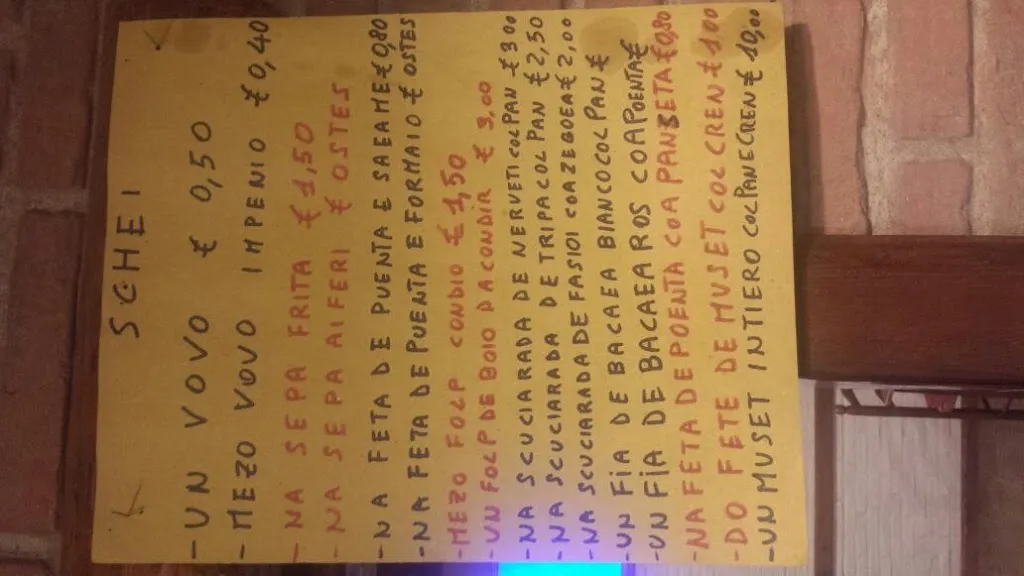 SCHEI
- UN VOVO € 0,50
- MEZO VOVO IMPENIO € 0,40
- NA SEPA FRITA € 1,50
- NA SEPA AI FERI € OSTES
- NA FETA DE PUENTA E SAEAME € 0,80
- NA FETA DE PUENTA E FORMAIO € OSTES
- MEZO FOLP CONDIO € 1,50
- UN FOLP DE BOIO DA CONDIR € 3,00
- NA SCUCIARADA DE NERVETI COL PAN € 3 00
- NA SCUCIARADA DE TRIPA COL PAN € 2,50
- NA SCUCIARADA DE FASIOI COA ZEGOEA € 2,00
- UN FIA DE BACAEA BIANCO COL PAN €
- UN FIA DE BACAEA ROS COA POENTA €
- NA FETA DE POENTA COA PANSETA € 0,80
- DO FETE DE MUSET COL CREN € 1 00
- UN MUSET INTIERO COL PAN E CREN € 10,00